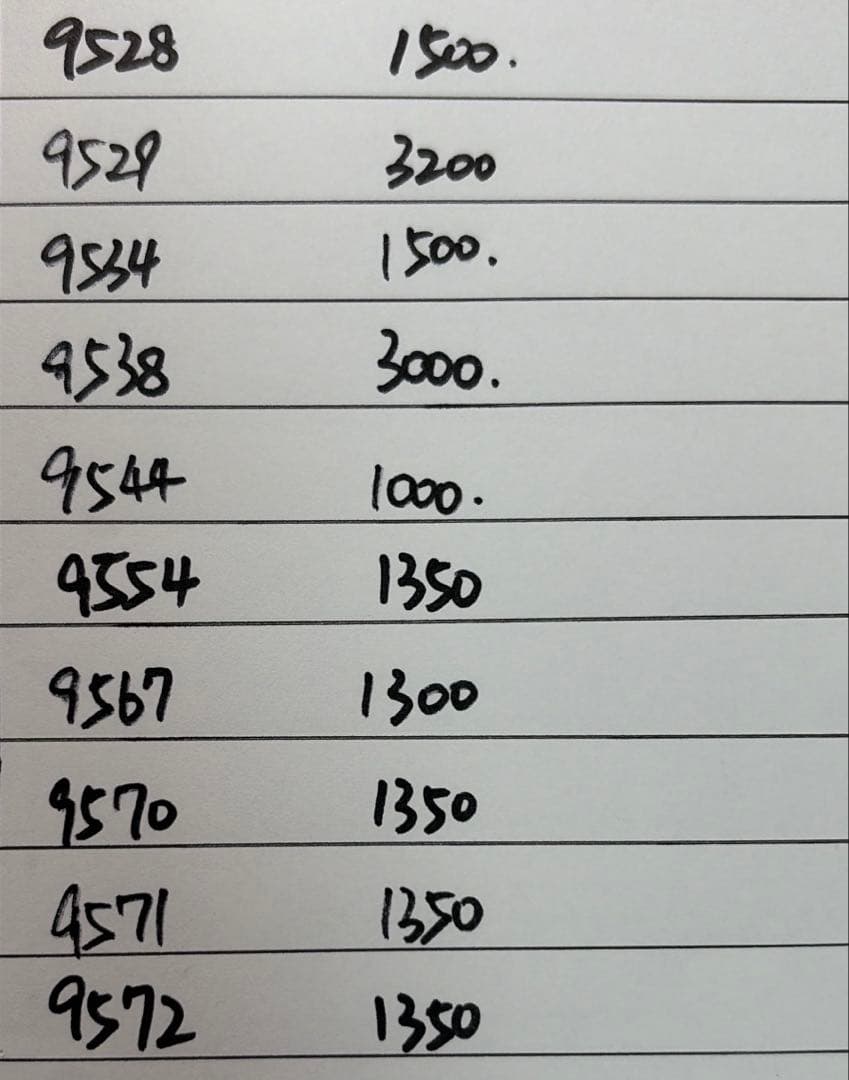 9528 1500.
9529 3200
9534 1500.
9538 3000.
9544 1000.
9554 1350
9567 1300
9570 1350
9571 1350
9572 1350